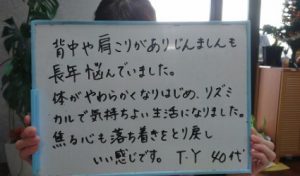 背中や肩こりがありじんましんも
長年悩んでいました。
体がやわらかくなりはじめ、リズミ
カルで気持ちよい生活になりました。
焦る心も落ち着きをとり戻し
いい感じです。 T.Y 40代